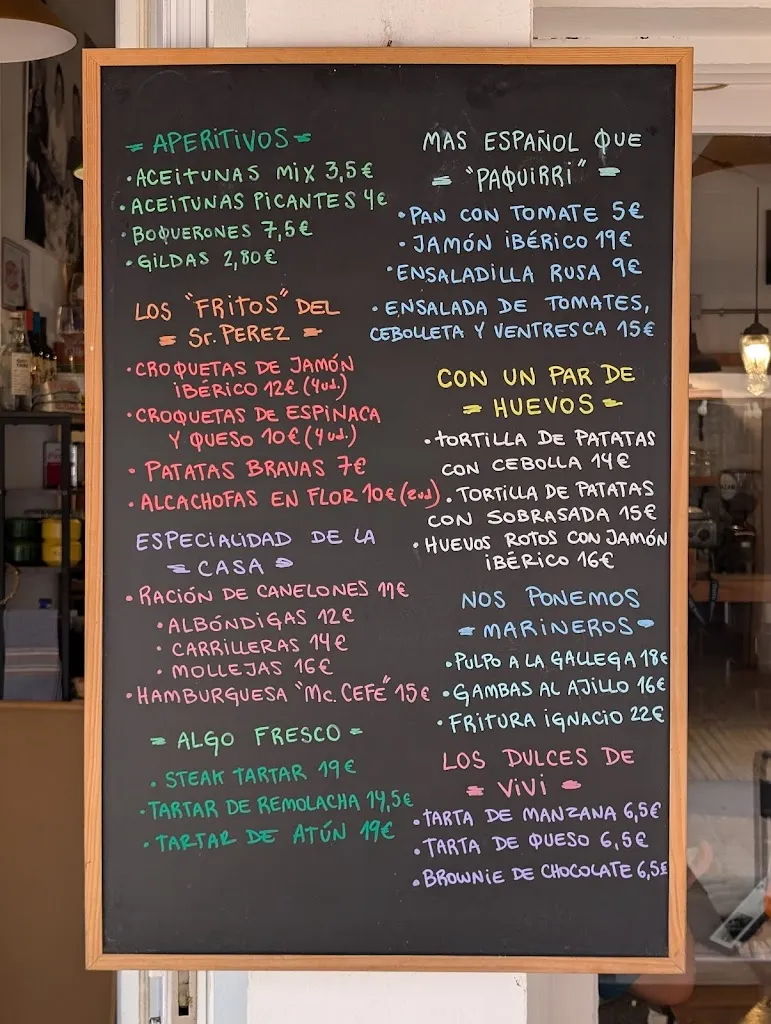 = APERITIVOS =
• ACEITUNAS MIX 3,5€
• ACEITUNAS PICANTES 4€
• BOQUERONES 7,5€
• GILDAS 2,80€
LOS "FRITOS" DEL
= Sr. PEREZ =
• CROQUETAS DE JAMÓN
IBÉRICO 12€ (4ud.)
• CROQUETAS DE ESPINACA
Y QUESO 10€ (4ud.)
• PATATAS BRAVAS 7€
• ALCACHOFAS EN FLOR 10€ (2ud)
ESPECIALIDAD DE LA
= CASA =
• RACIÓN DE CANELONES 17€
• ALBÓNDIGAS 12€
• CARRILLERAS 14€
• MOLLEJAS 16€
• HAMBURGUESA "Mc. CEFE" 15€
= ALGO FRESCO =
• STEAK TARTAR 19€
• TARTAR DE REMOLACHA 14,5€
• TARTAR DE ATÚN 19€
MAS ESPAÑOL QUE
= "PAQUIRRI" =
• PAN CON TOMATE 5€
• JAMÓN IBÉRICO 19€
• ENSALADILLA RUSA 9€
• ENSALADA DE TOMATES,
CEBOLLETA Y VENTRESCA 15€
CON UN PAR DE
= HUEVOS =
• TORTILLA DE PATATAS
CON CEBOLLA 14€
• TORTILLA DE PATATAS
CON SOBRASADA 15€
• HUEVOS ROTOS CON JAMÓN
IBÉRICO 16€
NOS PONEMOS
= MARINEROS =
• PULPO A LA GALLEGA 18€
• GAMBAS AL AJILLO 16€
• FRITURA IGNACIO 22€
LOS DULCES DE
= VIVI =
• TARTA DE MANZANA 6,5€
• TARTA DE QUESO 6,5€
• BROWNIE DE CHOCOLATE 6,5€